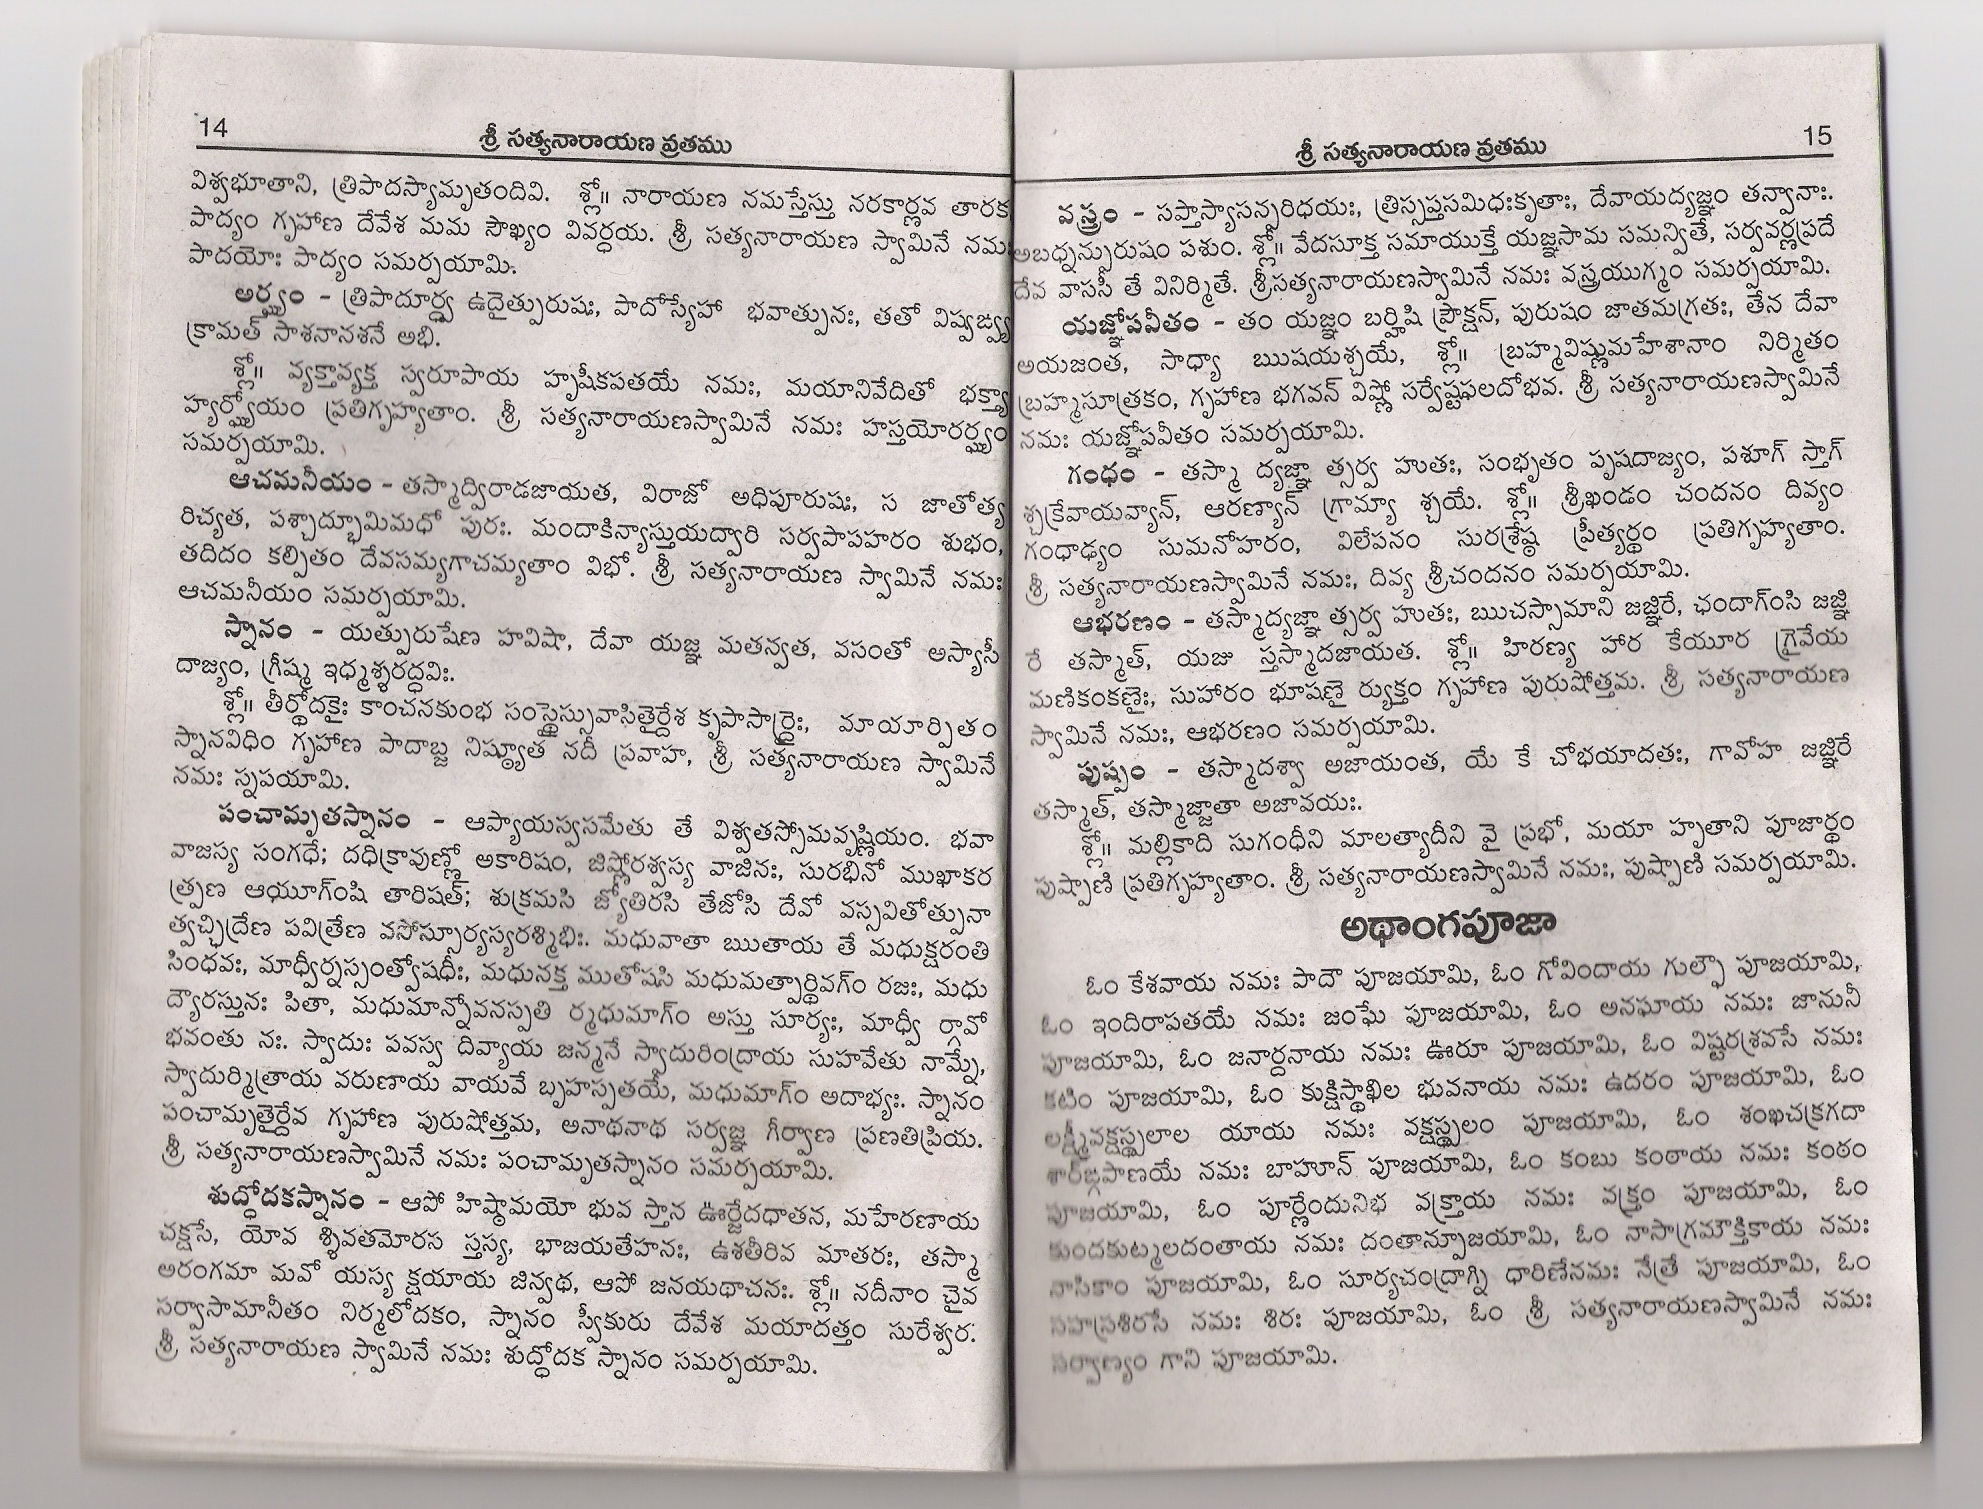 14
శ్రీ సత్యనారాయణ వ్రతము
విశ్వభూతాని, త్రిపాదస్యామృతందివి. శ్లో॥ నారాయణ నమస్తేస్తు నరకార్ణవ తారక
పాద్యం గృహాణ దేవేశ మమ సౌఖ్యం వివర్ధయ. శ్రీ సత్యనారాయణ స్వామినే నమః
పాదయోః పాద్యం సమర్పయామి.
అర్ఘ్యం - త్రిపాదూర్ధ్వ ఉదైత్పురుషః, పాదోస్యేహా భవాత్పునః, తతో విష్వఙ్వ్య
క్రామత్ సాశనానశనే అభి.
శ్లో॥ వ్యక్తావ్యక్త స్వరూపాయ హృషీకపతయే నమః, మయానివేదితో భక్త్యా
హ్యర్ఘ్యోయం ప్రతిగృహ్యతాం. శ్రీ సత్యనారాయణస్వామినే నమః హస్తయోరర్ఘ్యం
సమర్పయామి.
ఆచమనీయం - తస్మాద్విరాడజాయత, విరాజో అధిపూరుషః, స జాతోత్య
రిచ్యత, పశ్చాద్భూమిమధో పురః. మందాకిన్యాస్తుయద్వారి సర్వపాపహరం శుభం,
తదిదం కల్పితం దేవసమ్యగాచమ్యతాం విభో. శ్రీ సత్యనారాయణ స్వామినే నమః
ఆచమనీయం సమర్పయామి.
స్నానం - యత్పురుషేణ హవిషా, దేవా యజ్ఞ మతన్వత, వసంతో అస్యాసీ
దాజ్యం, గ్రీష్మ ఇధ్మశ్శరద్ధవిః.
శ్లో॥ తీర్థోదకైః కాంచనకుంభ సంస్థైస్సువాసితైర్దేశ కృపాసార్ద్రైః, మాయార్పితం
స్నానవిధిం గృహాణ పాదాబ్జ నిష్ఠ్యూత నదీ ప్రవాహ, శ్రీ సత్యనారాయణ స్వామినే
నమః స్నపయామి.
పంచామృతస్నానం - ఆప్యాయస్వసమేతు తే విశ్వతస్సోమవృష్ణియం. భవా
వాజస్య సంగధే; దధిక్రావుణ్ణో అకారిషం, జిష్ణోరశ్వస్య వాజినః, సురభినో ముఖాకర
త్ప్రణ ఆయూగ్ంషి తారిషత్; శుక్రమసి జ్యోతిరసి తేజోసి దేవో వస్సవితోత్పునా
త్వచ్ఛిద్రేణ పవిత్రేణ వసోస్సూర్యస్యరశ్మిభిః. మధువాతా ఋతాయ తే మధుక్షరంతి
సింధవః, మాధ్వీర్నస్సంత్వోషధీః, మధునక్త ముతోషసి మధుమత్పార్థివగ్ం రజః, మధు
ద్యౌరస్తునః పితా, మధుమాన్నోవనస్పతి ర్మధుమాగ్ం అస్తు సూర్యః, మాధ్వీ ర్గావో
భవంతు నః. స్వాదుః పవస్వ దివ్యాయ జన్మనే స్వాదురింద్రాయ సుహవేతు నామ్నే,
స్వాదుర్మిత్రాయ వరుణాయ వాయవే బృహస్పతయే, మధుమాగ్ం అదాభ్యః. స్నానం
పంచామృతైర్దేవ గృహాణ పురుషోత్తమ, అనాథనాథ సర్వజ్ఞ గీర్వాణ ప్రణతిప్రియ.
శ్రీ సత్యనారాయణస్వామినే నమః పంచామృతస్నానం సమర్పయామి.
శుద్ధోదకస్నానం - ఆపో హిష్ఠామయో భువ స్తాన ఊర్జేదధాతన, మహేరణాయ
చక్షసే, యోవ శ్శివతమోరస స్తస్య, భాజయతేహనః, ఉశతీరివ మాతరః, తస్మా
అరంగమా మవో యస్య క్షయాయ జిన్వథ, ఆపో జనయథాచనః. శ్లో॥ నదీనాం చైవ
సర్వాసామానీతం నిర్మలోదకం, స్నానం స్వీకురు దేవేశ మయాదత్తం సురేశ్వర.
శ్రీ సత్యనారాయణ స్వామినే నమః శుద్ధోదక స్నానం సమర్పయామి.
శ్రీ సత్యనారాయణ వ్రతము
15
వస్త్రం - సప్తాస్యాసన్పరిధయః, త్రిస్సప్తసమిధఃకృతాః, దేవాయద్యజ్ఞం తన్వానాః.
అబధ్నన్పురుషం పశుం. శ్లో॥ వేదసూక్త సమాయుక్తే యజ్ఞసామ సమన్వితే, సర్వవర్ణప్రదే
దేవ వాససీ తే వినిర్మితే. శ్రీసత్యనారాయణస్వామినే నమః వస్త్రయుగ్మం సమర్పయామి.
యజ్ఞోపవీతం - తం యజ్ఞం బర్హిషి ప్రౌక్షన్, పురుషం జాతమగ్రతః, తేన దేవా
అయజంత, సాధ్యా ఋషయశ్చయే, శ్లో॥ బ్రహ్మవిష్ణుమహేశానాం నిర్మితం
బ్రహ్మసూత్రకం, గృహాణ భగవన్ విష్ణో సర్వేష్టఫలదోభవ. శ్రీ సత్యనారాయణస్వామినే
నమః యజ్ఞోపవీతం సమర్పయామి.
గంధం - తస్మా ద్యజ్ఞా త్సర్వ హుతః, సంభృతం పృషదాజ్యం, పశూగ్ స్తాగ్
శ్చక్రేవాయవ్యాన్, ఆరణ్యాన్ గ్రామ్యా శ్చయే. శ్లో॥ శ్రీఖండం చందనం దివ్యం
గంధాఢ్యం సుమనోహరం, విలేపనం సురశ్రేష్ఠ ప్రీత్యర్థం ప్రతిగృహ్యతాం.
శ్రీ సత్యనారాయణస్వామినే నమః, దివ్య శ్రీచందనం సమర్పయామి.
ఆభరణం - తస్మాద్యజ్ఞా త్సర్వ హుతః, ఋచస్సామాని జజ్ఞిరే, ఛందాగ్ంసి జజ్ఞి
రే తస్మాత్, యజు స్తస్మాదజాయత. శ్లో॥ హిరణ్య హార కేయూర గ్రైవేయ
మణికంకణైః, సుహారం భూషణై ర్యుక్తం గృహాణ పురుషోత్తమ. శ్రీ సత్యనారాయణ
స్వామినే నమః, ఆభరణం సమర్పయామి.
పుష్పం - తస్మాదశ్వా అజాయంత, యే కే చోభయాదతః, గావోహ జజ్ఞిరే
తస్మాత్, తస్మాజ్జాతా అజావయః.
శ్లో॥ మల్లికాది సుగంధీని మాలత్యాదీని వై ప్రభో, మయా హృతాని పూజార్థం
పుష్పాణి ప్రతిగృహ్యతాం. శ్రీ సత్యనారాయణస్వామినే నమః, పుష్పాణి సమర్పయామి.
అథాంగపూజా
ఓం కేశవాయ నమః పాదౌ పూజయామి, ఓం గోవిందాయ గుల్ఫౌ పూజయామి,
ఓం ఇందిరాపతయే నమః జంఘే పూజయామి, ఓం అనఘాయ నమః జానునీ
పూజయామి, ఓం జనార్దనాయ నమః ఊరూ పూజయామి, ఓం విష్టరశ్రవసే నమః
కటిం పూజయామి, ఓం కుక్షిస్థాఖిల భువనాయ నమః ఉదరం పూజయామి, ఓం
లక్ష్మీవక్షస్థ్సలాల యాయ నమః వక్షస్థ్సలం పూజయామి, ఓం శంఖచక్రగదా
శార్ఙ్గపాణయే నమః బాహూన్ పూజయామి, ఓం కంబు కంఠాయ నమః కంఠం
పూజయామి, ఓం పూర్ణేందునిభ వక్త్రాయ నమః వక్త్రం పూజయామి, ఓం
కుందకుట్మలదంతాయ నమః దంతాన్పూజయామి, ఓం నాసాగ్రమౌక్తికాయ నమః
నాసికాం పూజయామి, ఓం సూర్యచంద్రాగ్ని ధారిణేనమః నేత్రే పూజయామి, ఓం
సహస్రశిరసే నమః శిరః పూజయామి, ఓం శ్రీ సత్యనారాయణస్వామినే నమః
సర్వాణ్యం గాని పూజయామి.